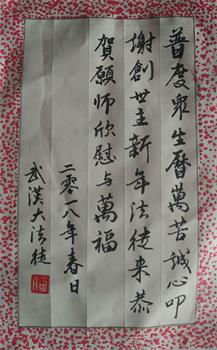 普度眾生曆萬苦誠心叩
謝創世主新年法徒来恭
賀願师欣慰与萬福
二零一八年春日
武漢大法徒